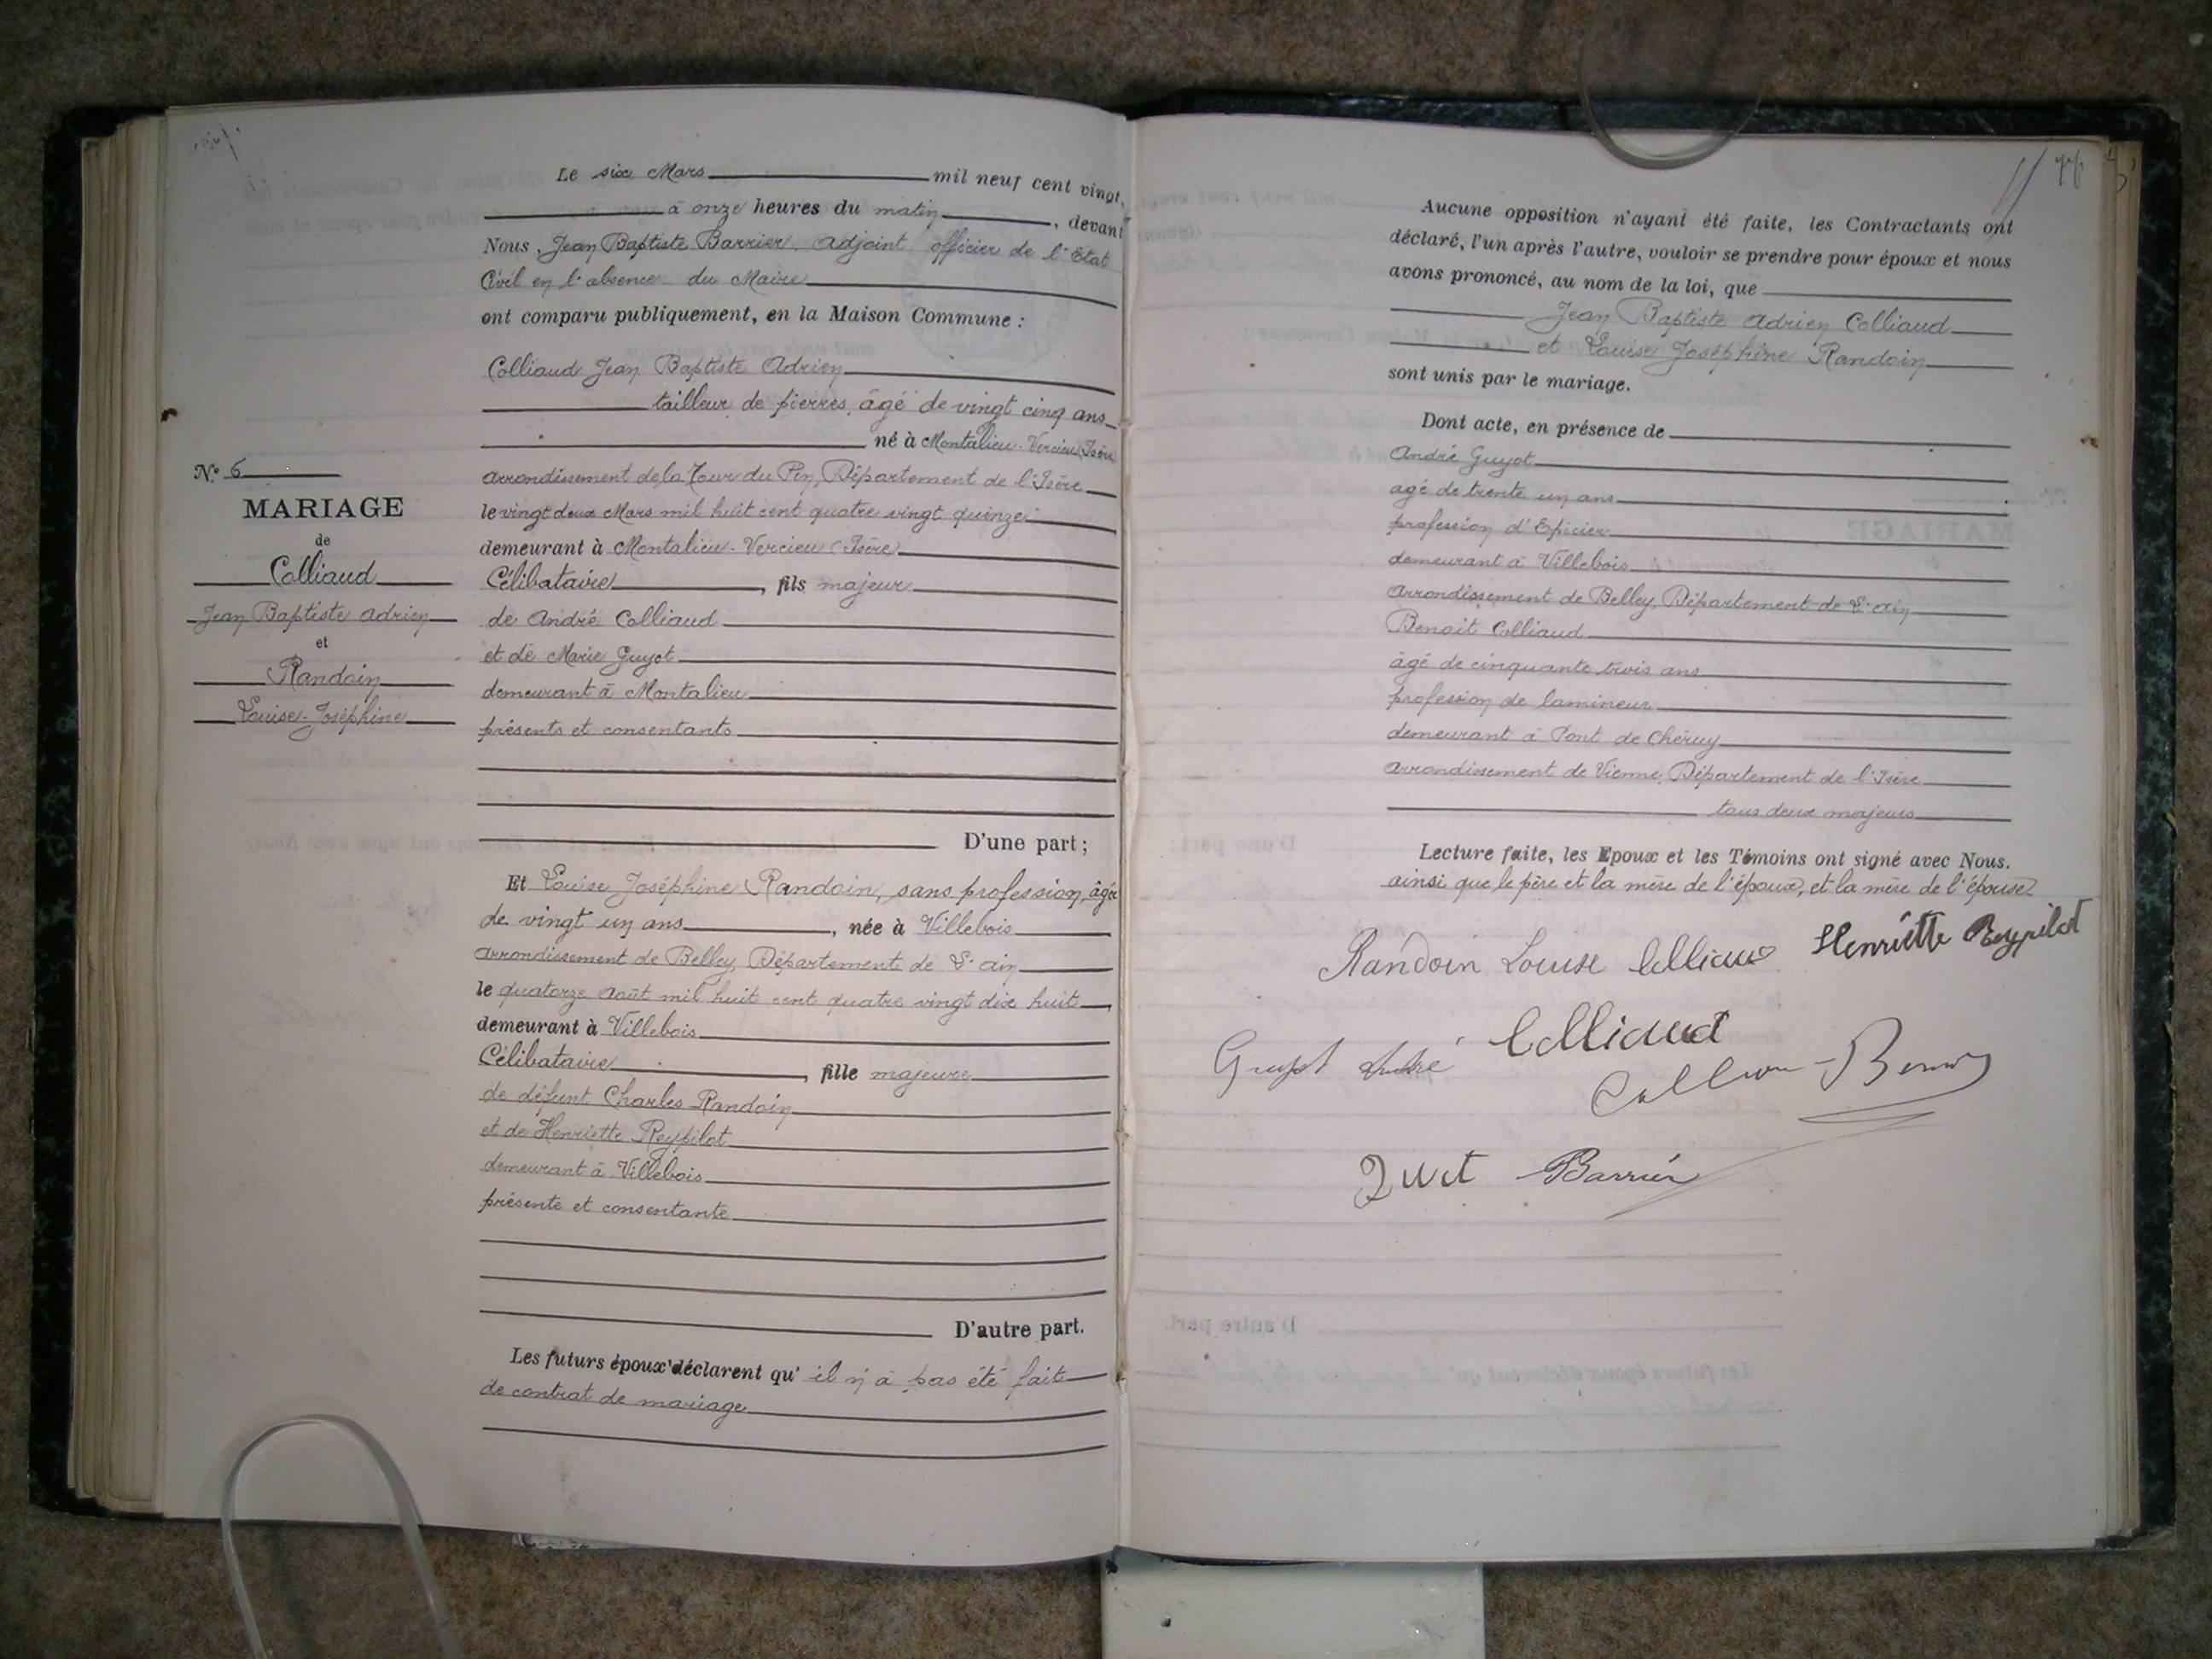 Le six Mars mil neuf cent vingt,
à onze heures du matin, devant
Nous, Jean Baptiste Barrier, adjoint officier de l'Etat
Civil en l'absence du Maire
ont comparu publiquement, en la Maison Commune :
Colliaud Jean Baptiste Adrien
tailleur de pierres, âgé de vingt cinq ans
né à Montalieu-Vercieu (Isère
arrondissement de la Tour du Pin, Département de l'Isère
le vingt deux Mars mil huit cent quatre vingt quinze
demeurant à Montalieu-Vercieu (Isère)
Célibataire, fils majeur
de André Colliaud
et de Marie Guyot
demeurant à Montalieu
présents et consentants
D'une part ;
N° 6
MARIAGE
de
Colliaud
Jean Baptiste Adrien
et
Randoin
Louise-Joséphine
Et Louise Joséphine Randoin, sans profession, âgée
de vingt un ans, née à Villebois
arrondissement de Belley, Département de L'ain
le quatorze Août mil huit cent quatre vingt dix huit
demeurant à Villebois
Célibataire, fille majeure
de défunt Charles Randoin
et de Henriette Reypilot
demeurant à Villebois
présente et consentante
D'autre part.
Les futurs époux déclarent qu'il n'a pas été fait
de contrat de mariage
76
Aucune opposition n'ayant été faite, les Contractants ont
déclaré, l'un après l'autre, vouloir se prendre pour époux et nous
avons prononcé, au nom de la loi, que
Jean Baptiste Adrien Colliaud
et Louise Joséphine Randoin
sont unis par le mariage.
Dont acte, en présence de
André Guyot
agé de trente un ans
profession d'Epicier
demeurant à Villebois
arrondissement de Belley, Département de L'ain
Benoit Colliaud
âgé de cinquante trois ans
profession de lamineur
demeurant à Pont de Chéruy
arrondissement de Vienne, Département de l'Isère
tous deux majeurs
Lecture faite, les Epoux et les Témoins ont signé avec Nous.
ainsi que le père et la mère de l'époux, et la mère de l'épouse
Randoin Louise Colliaud Henriette Reypilot
Guyot André Colliaud
Benoit
Barrier